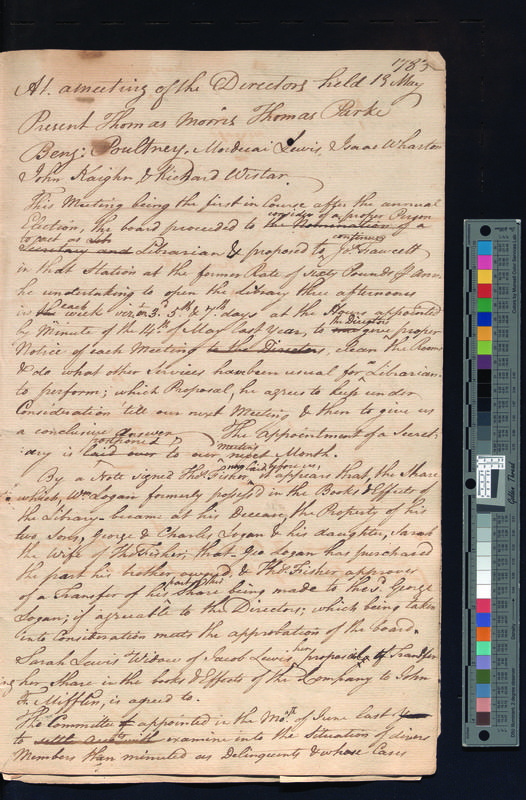 1783
At a meeting of the Directors held 13 May
Present Thomas Morris Thomas Parke
Benj: Poultney, Mordecai Lewis, Isaac Wharton
John Kaighn & Richard Wistar
This Meeting being the first in Course after the annual
consider of a proper Person
Election, the board proceeded to the Nomination of a
to act as continue
Secretary and Librarian & proposed to Jos. Fawcett
in that Station at the former Rate of Sixty Pounds P Ann.
he undertaking to open the Library three afternoons
in each week viz. on 3d. 5th. & 7th. days at the Hours appointed
the Directors
by Minute of the 14th of May last Year, to give proper
Notice of each Meeting to the Directors, clean the Room
& do what other Services have been usual for a Librarian
to perform; which Proposal, he agrees to keep under
Consideration till our next Meeting & then to give us
a conclusive answer. The appointment of a Secret-
postponed meeting
ary is laid over to our next Month.
now laid before us,
By a Note signed Thos. Fisher, it appears that the Share
which Wm. Logan formerly possess'd in the Books & Effects of
the Library became at his Decease, the Property of his
two Sons, George & Charles Logan & his daughter, Sarah
the Wife of Thos. Fisher; that Geo Logan has purchased
the part his brother owned, & Thos. Fisher approves
part of this
of a Transfer of his Share being made to the sd. George
Logan; if agreeable to the Directors; which being taken
into Consideration meets the approbation of the board.
Sarah Lewis Widow of Jacob Lewis, her proposal of Transfer
ing her Share in the books & Effects of the Company to John
F. Mifflin, is agreed to.
The Committee appointed in the Mo. of June last
to examine into the Situation of divers
Members then minuted as Delinquents & whose Cases